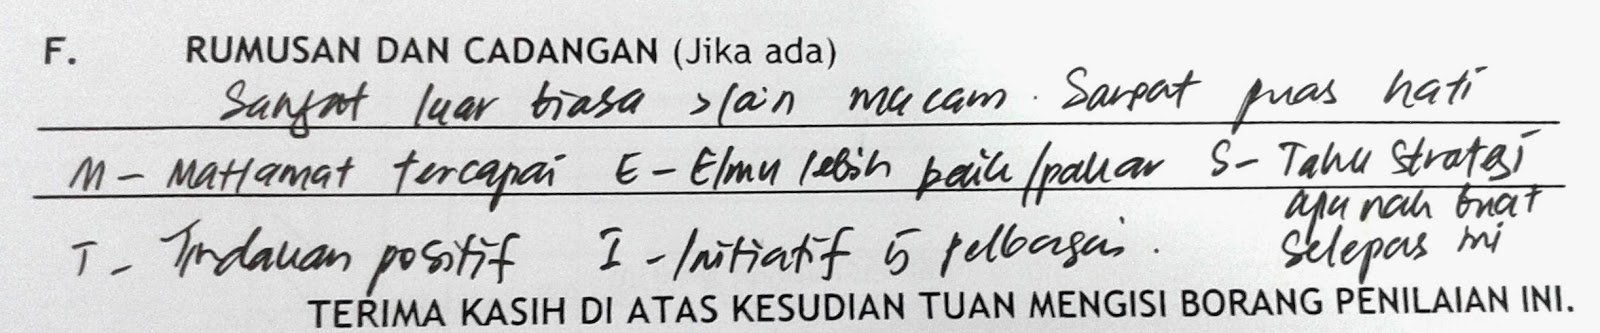 F. RUMUSAN DAN CADANGAN (Jika ada)
Sangat luar biasa slain macam. Sangat puas hati
M - Matlamat tercapai E - Elmu lebih baik/pakar S - Tahu Strategi
apa nak buat
T - Tindakan positif I - Initiatif 5 pelbagai. Selepas ini
TERIMA KASIH DI ATAS KESUDIAN TUAN MENGISI BORANG PENILAIAN INI.